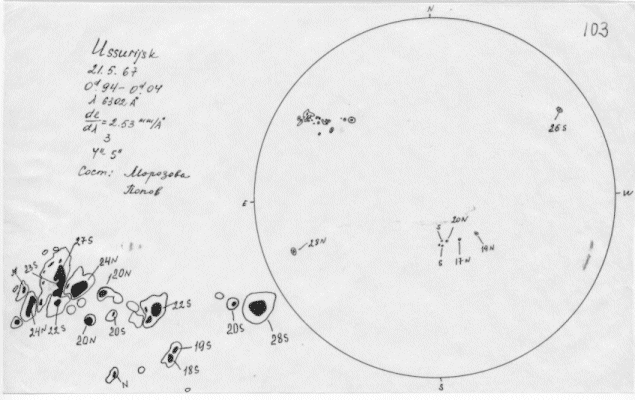 103
Ussurijsk
21.5.67
0ᵈ.94 – 0ᵈ.04
λ 6302 Å
dℓ/dλ = 2.53 mm/Å
3
4" 5"
Сост: Морозова
Попов
N
E
W
S
26S
28N
S
20N
S
17N
19N
27S
23S
24N
20N
24N
22S
20N
20S
22S
20S
28S
19S
18S
N